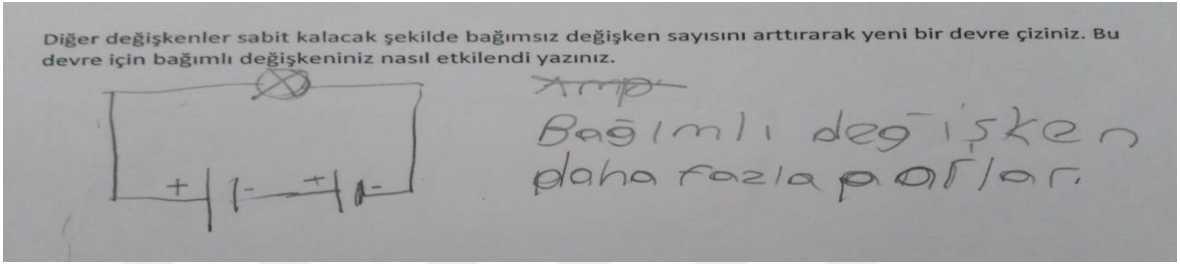 Diğer değişkenler sabit kalacak şekilde bağımsız değişken sayısını arttırarak yeni bir devre çiziniz. Bu
devre için bağımlı değişkeniniz nasıl etkilendi yazınız.
Amp
Bağımlı değişken
daha fazla parlar.
+ - + -